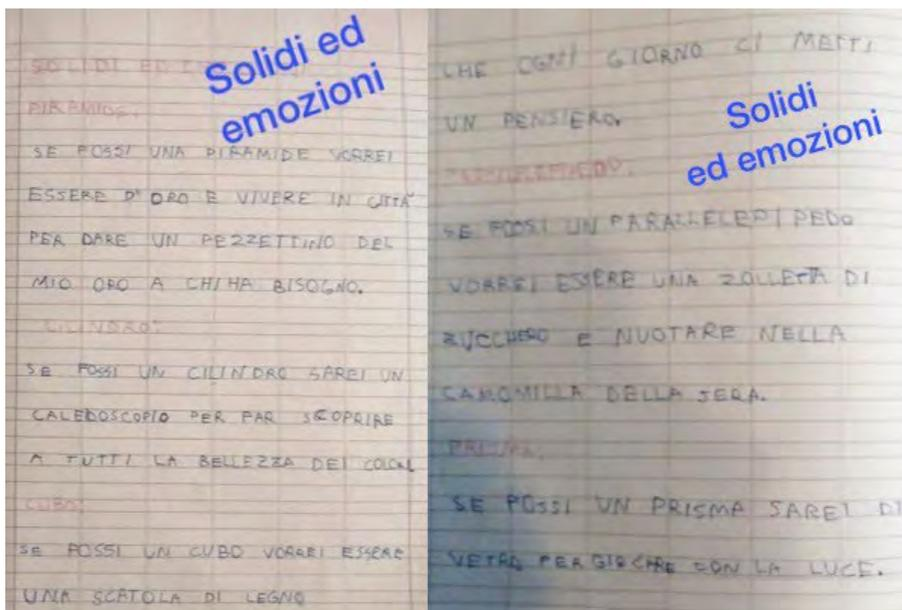 SOLIDI ED
Solidi ed
emozioni
PIRAMIDE:
SE FOSSI UNA PIRAMIDE VORREI
ESSERE D'ORO E VIVERE IN CITTÀ
PER DARE UN PEZZETTINO DEL
MIO ORO A CHI HA BISOGNO.
CILINDRO:
SE FOSSI UN CILINDRO SAREI UN
CALEDOSCOPIO PER FAR SCOPRIRE
A TUTTI LA BELLEZZA DEI COLORI
CUBO:
SE FOSSI UN CUBO VORREI ESSERE
UNA SCATOLA DI LEGNO
CHE OGNI GIORNO CI METTI
UN PENSIERO.
Solidi
ed emozioni
SE FOSSI UN PARALLELEPIPEDO
VORREI ESSERE UNA ZOLLETTA DI
ZUCCHERO E NUOTARE NELLA
CAMOMILLA DELLA SERA.
PRISMA:
SE FOSSI UN PRISMA SAREI DI
VETRO PER GIOCARE CON LA LUCE.